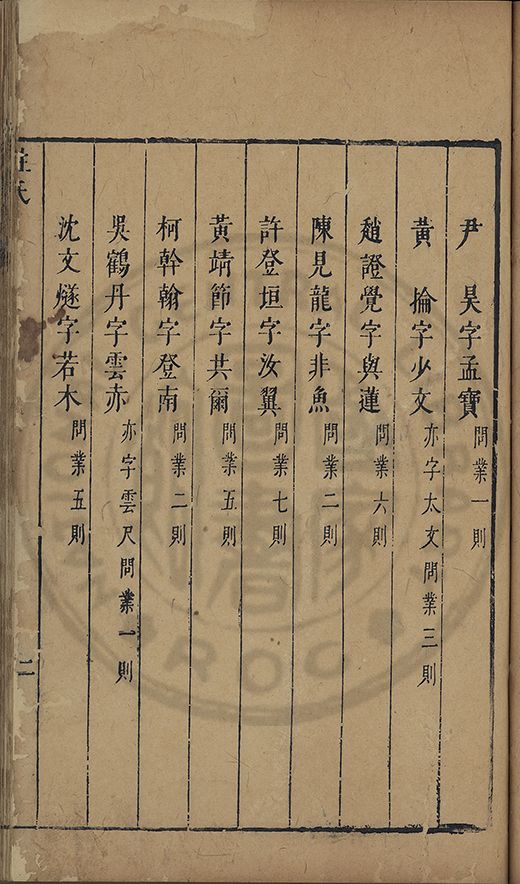 尹　昊字孟寶問業一則
黄　掄字少文亦字太文問業三則
趙證覺字與蓮問業六則
陳見龍字非魚問業二則
許登垣字汝翼問業七則
黄靖節字共爾問業五則
柯幹翰字登南問業二則
吳鶴丹字雲赤亦字雲尺問業一則
沈文燧字若木問業五則
姓氏
二
ROC